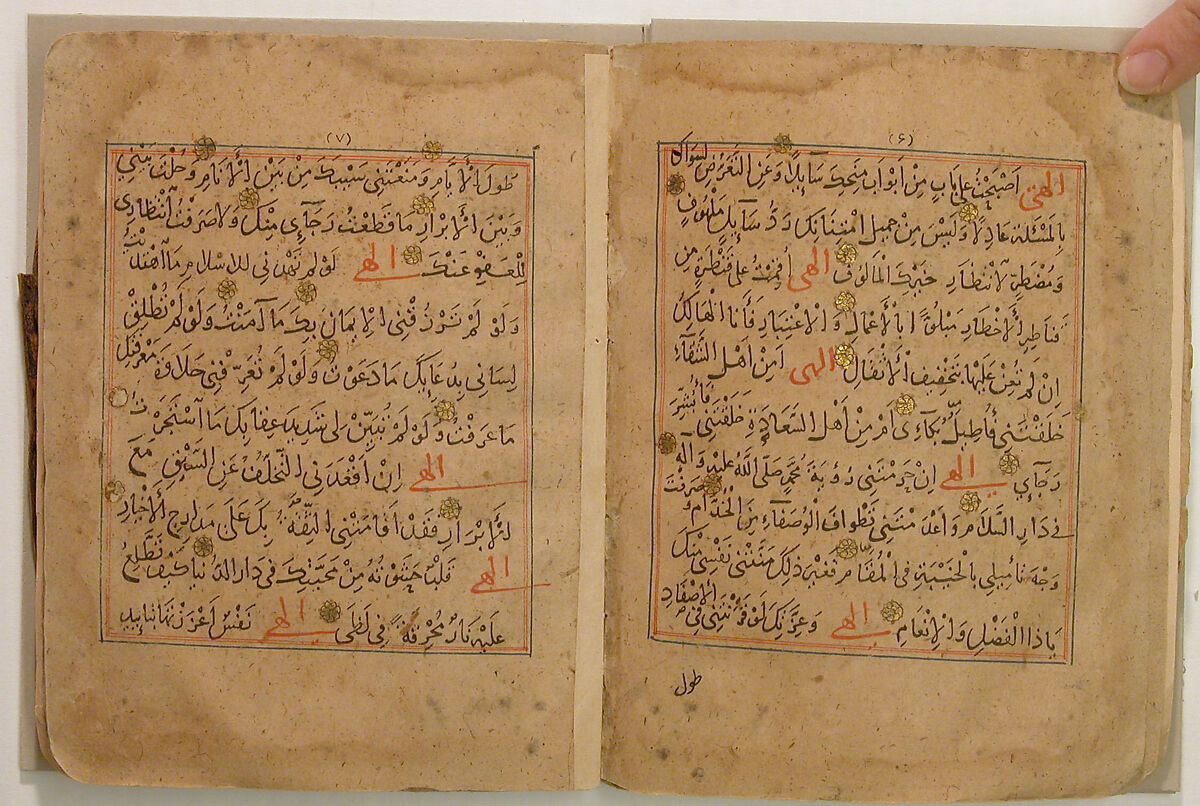 (۶)
الهى اَصْبَحْتُ عَلى بَابٍ مِنْ اَبْوَابِ مِنَحِكَ سَآئِلًا وَعَنِ التَّعَرُّضِ لسواك
بِالْمَسْئَلَةِ عَادِلًا وَلَيْسَ مِنْ جَمِيلِ امْتِنَانِكَ رَدُّ سَآئِلٍ مَلْهُوفٍ
وَمُضْطَرٍّ لِانْتِظَارِ خَيْرِكَ الْمَالُوفِ الهى اَقَمْتُ عَلى قَنْطَرَةٍ مِنْ
قَنَاطِرِ الْاَخْطَارِ مَبْلُوًّا بِالْاَعْمَالِ وَالْاِعْتِبَارِ فَاَنَا الْهَالِكُ
اِنْ لَمْ تُعِنْ عَلَيْهَا بِتَخْفِيفِ الْاَثْقَالِ الهى اَمِنْ اَهْلِ الشَّقَآءِ
خَلَقْتَنِى فَاُطِيلَ بُكَآئِى اَمْ مِنْ اَهْلِ السَّعَادَةِ خَلَقْتَنِى فَاُبَشِّرَ
رَجَآئِي الهى اِنْ حَرَمْتَنِى رُؤْيَةَ مُحَمَّدٍ صَلَّى اللهُ عَلَيْهِ وَآلِه
فِى دَارِ السَّلَامِ وَاَعْدَمْتَنِى تَطْوَافَ الْوُصَفَآءِ مِنَ الْخُدَّامِ وَصَرَفْتَ
وَجْهَ تَأْمِيلِى بِالْخَيْبَةِ فِى الْمُقَامِ فَغَيْرَ ذلِكَ مَنَّتْنِى نَفْسِى مِنْكَ
يَا ذَا الْفَضْلِ وَالْاِنْعَامِ الهى وَعِزَّتِكَ لَوْ قَرَنْتَنِى فِى الْاَصْفَادِ
طول
(۷)
طُولَ الْاَيَّامِ وَمَنَعْتَنِى سَيْبَكَ مِنْ بَيْنِ الْاَنَامِ وَحُلْتَ بَيْنِي
وَبَيْنَ الْاَبْرَارِ مَا قَطَعْتُ رَجَآئِى مِنْكَ وَلَا صَرَفْتُ انْتِظَارِى
لِلْعَفْوِ عَنْكَ الهى لَوْ لَمْ تَهْدِنِى لِلْاِسْلَامِ مَا اهْتَدَيْتُ
وَلَوْ لَمْ تَرْزُقْنِى الْاِيمَانَ بِكَ مَا آمَنْتُ وَلَوْ لَمْ تُطْلِقْ
لِسَانِى بِدُعَآئِكَ مَا دَعَوْتُ وَلَوْ لَمْ تُعَرِّفْنِى حَلَاوَةَ مَعْرِفَتِكَ
مَا عَرَفْتُ وَلَوْ لَمْ تُبَيِّنْ لِى شَدِيدَ عِقَابِكَ مَا اسْتَجَرْتُ
الهى اِنْ اَقْعَدَنِى التَّخَلُّفُ عَنِ السَّبْقِ مَعَ
الْاَبْرَارِ فَقَدْ اَقَامَتْنِى الثِّقَةُ بِكَ عَلَى مَدَارِجِ الْاَخْيَارِ
الهى قَلْبًا حَشَوْتَهُ مِنْ مَحَبَّتِكَ فِى دَارِ الدُّنْيَا كَيْفَ تَطَّلِعُ
عَلَيْهِ نَارٌ مُحْرِقَةٌ فِى لَظَى الهى نَفْسٌ اَعْزَزْتَهَا بِتَايِيدِ